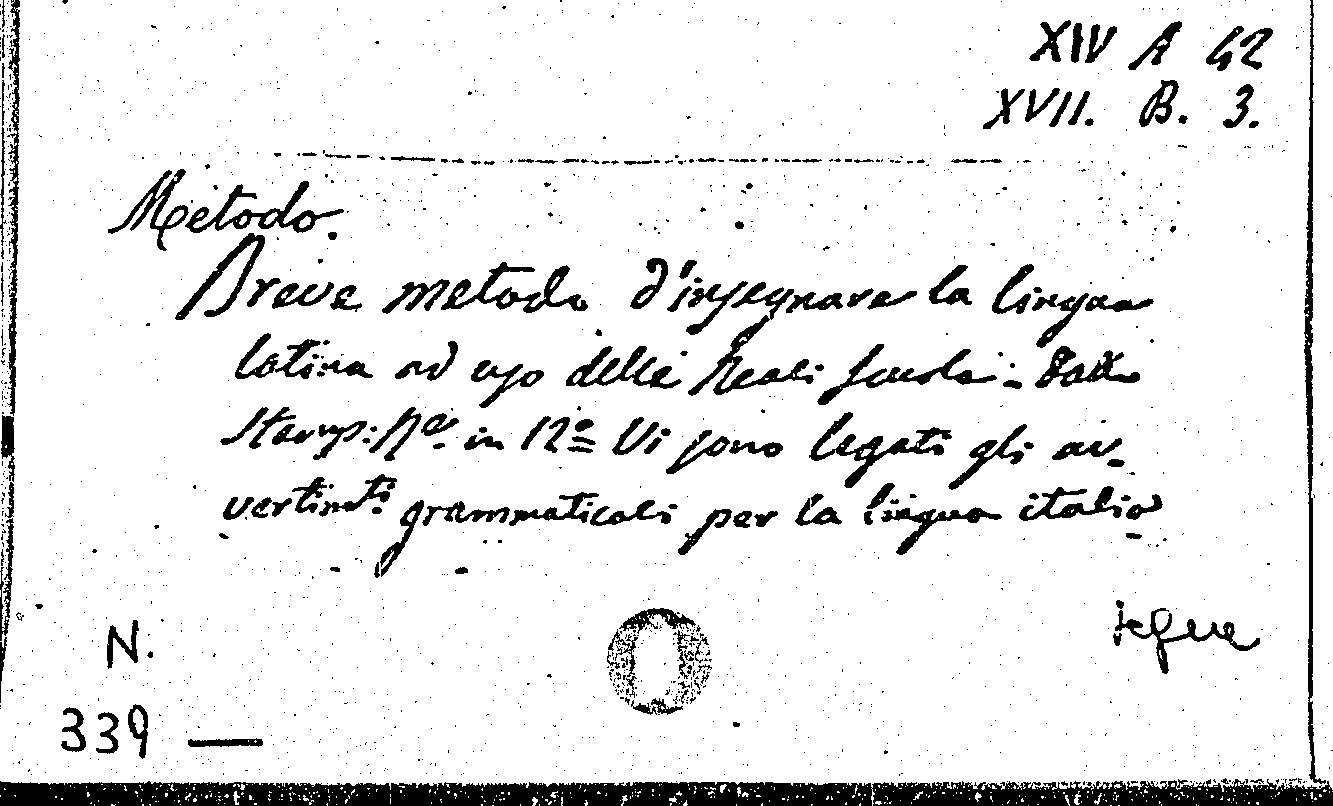 XIV A 42
XVII. B. 3.
Metodo.
Breve metodo d'insegnare la lingua
latina ad uso delle Reali Scuole. - Dalla
Stamp: Rle. in 12º Vi sono legati gli av-
vertimti. grammaticali per la lingua italia-
segue
N.
339 —